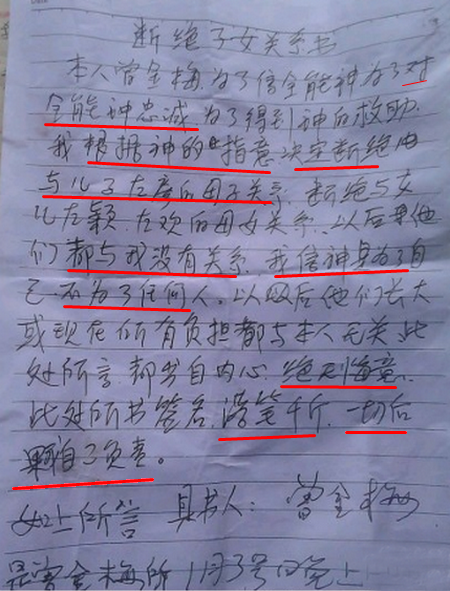 断绝子女关系书
本人曾金梅,为了信全能神为了对
全能神忠诚,为了得到神的救助,
我根据神的"指意"决定断绝
与儿子左 的母子关系,断绝与女
儿左颖、左欢的母女关系,以后 他
们都与我没有关系,我信神是为了自
己,不为了任何人,以及后他们长大
或现在所有负担都与本人无关,此
处所言,都出自内心,绝无悔意,
此处所书签名,落笔千斤,一切后
果自己负责。
如上所答 具书人:曾金梅
是曾金梅所 1月3号 晚上